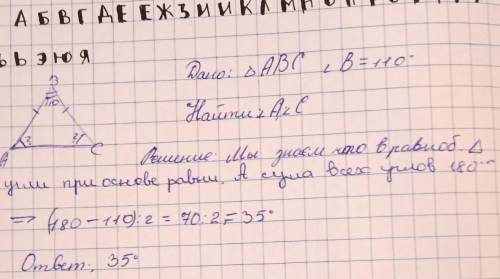 А Б В Г Д Е Ё Ж З И Й К Л М Н О П
Ь Э Ю Я
В
110
А
?
?
С
Дано: △ ABC ∠ B = 110°
Найти ∠ A ∠ C
Решение: Мы знаем что в равноб. △
угли при основе равны. А сума всех углов 180°
=> (180 - 110) : 2 = 70 : 2 = 35°
Ответ: 35°